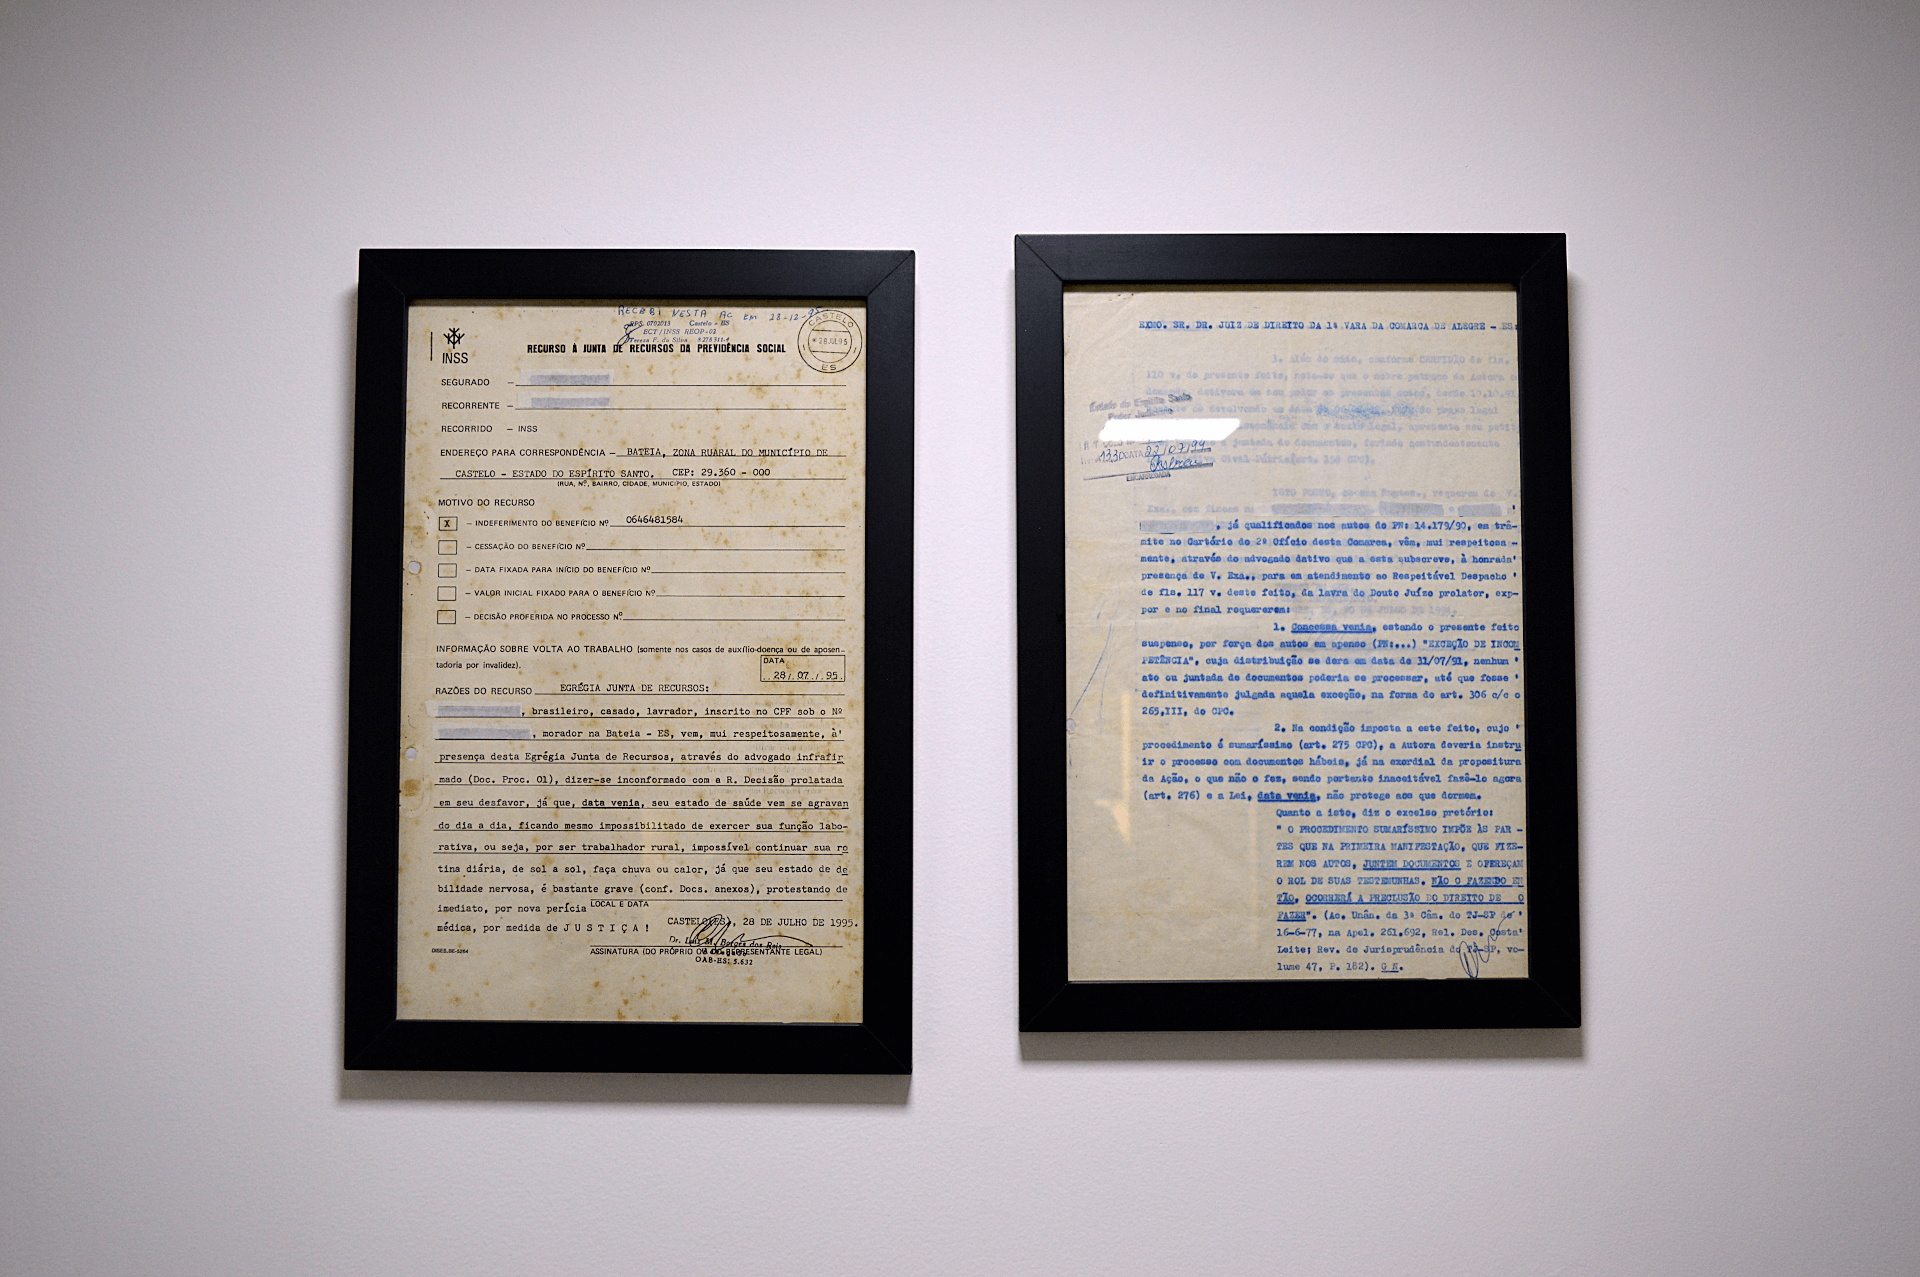 RECEBI NESTA AC EM 28-12-95
RPS. 0702013 Castelo - ES
ECT/INSS REOP-02
Tereza F. da Silva
CASTELO
28 JUL 95
ES
INSS
RECURSO À JUNTA DE RECURSOS DA PREVIDÊNCIA SOCIAL
SEGURADO –
RECORRENTE –
RECORRIDO – INSS
ENDEREÇO PARA CORRESPONDÊNCIA – BATEIA, ZONA RUARAL DO MUNICÍPIO DE
CASTELO - ESTADO DO ESPÍRITO SANTO. CEP: 29.360 - 000
(RUA, Nº, BAIRRO, CIDADE, MUNICÍPIO, ESTADO)
MOTIVO DO RECURSO
X – INDEFERIMENTO DO BENEFÍCIO Nº 0646481584
– CESSAÇÃO DO BENEFÍCIO Nº
– DATA FIXADA PARA INÍCIO DO BENEFÍCIO Nº
– VALOR INICIAL FIXADO PARA O BENEFÍCIO Nº
– DECISÃO PROFERIDA NO PROCESSO Nº
INFORMAÇÃO SOBRE VOLTA AO TRABALHO (somente nos casos de auxílio-doença ou de aposen-
tadoria por invalidez).
DATA
28/ 07 / 95.
RAZÕES DO RECURSO EGRÉGIA JUNTA DE RECURSOS:
, brasileiro, casado, lavrador, inscrito no CPF sob o Nº
, morador na Bateia - ES, vem, mui respeitosamente, à'
presença desta Egrégia Junta de Recursos, através do advogado infrafir
mado (Doc. Proc. 01), dizer-se inconformado com a R. Decisão prolatada
em seu desfavor, já que, data venia, seu estado de saúde vem se agravan
do dia a dia, ficando mesmo impossibilitado de exercer sua função labo-
rativa, ou seja, por ser trabalhador rural, impossível continuar sua ro
tina diária, de sol a sol, faça chuva ou calor, já que seu estado de de
bilidade nervosa, é bastante grave (conf. Docs. anexos), protestando de
imediato, por nova perícia LOCAL E DATA
médica, por medida de J U S T I Ç A !
CASTELO(ES), 28 DE JULHO DE 1995.
Dr. Luiz M. Borges dos Reis
ASSINATURA (DO PRÓPRIO OU DO REPRESENTANTE LEGAL)
OAB-ES: 5.632
EXMO. SR. DR. JUIZ DE DIREITO DA 1ª VARA DA COMARCA DE ALEGRE - ES:
Estado do Espírito Santo
Poder Judiciário
1330 DATA 22/07/94
ENCARREGADA
, já qualificados nos autos do PN: 14.179/90, em trâ-
mite no Cartório do 2º Ofício desta Comarca, vêm, mui respeitosa -
mente, através do advogado dativo que a esta subscreve, à honrada'
presença de V. Exa., para em atendimento ao Respeitável Despacho '
de fls. 117 v. deste feito, da lavra do Douto Juízo prolator, exp-
por e no final requererem:
1. Concessa venia, estando o presente feito
suspenso, por força dos autos em apenso (PN:...) "EXCEÇÃO DE INCOM
PETÊNCIA", cuja distribuição se dera em data de 31/07/91, nenhum '
ato ou juntada de documentos poderia se processar, até que fosse '
definitivamente julgada aquela exceção, na forma do art. 306 c/c o
265,III, do CPC.
2. Na condição imposta a este feito, cujo '
procedimento é sumaríssimo (art. 275 CPC), a Autora deveria instru
ir o processo com documentos hábeis, já na exordial da propositura
da Ação, o que não o fez, sendo portanto inaceitável fazê-lo agora
(art. 276) e a Lei, data venia, não protege aos que dormem.
Quanto a isto, diz o excelso pretório:
" O PROCEDIMENTO SUMARÍSSIMO IMPÕE ÀS PAR -
TES QUE NA PRIMEIRA MANIFESTAÇÃO, QUE FIZE-
REM NOS AUTOS, JUNTEM DOCUMENTOS E OFEREÇAM
O ROL DE SUAS TESTEMUNHAS. NÃO O FAZENDO EN
TÃO, OCORRERÁ A PRECLUSÃO DO DIREITO DE O
FAZER". (Ac. Unân. da 3ª Câm. do TJ-SP de '
16-6-77, na Apel. 261.692, Rel. Des. Costa'
Leite; Rev. de Jurisprudência do TJ-SP, vo-
lume 47, P. 182). G N.